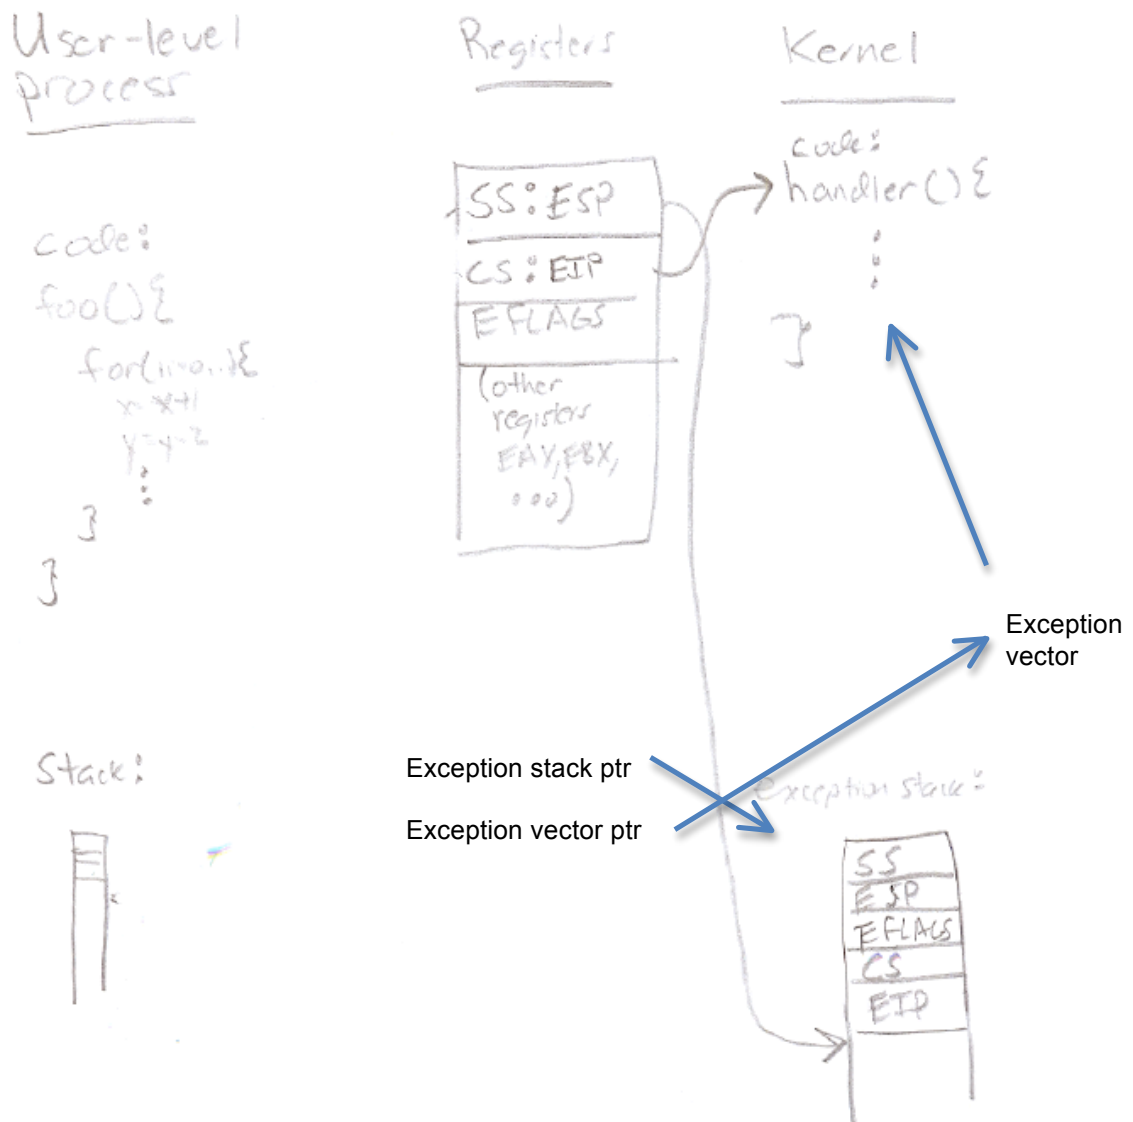 User-level
process
code:
foo(){
for(i=0..){
x=x+1
y=y-2
}
}
Stack:
Registers
SS:ESP
CS:EIP
EFLAGS
(other
registers
EAX,EBX,
...)
Kernel
code:
handler(){
}
Exception
vector
Exception stack ptr
Exception vector ptr
exception stack:
SS
ESP
EFLAGS
CS
EIP